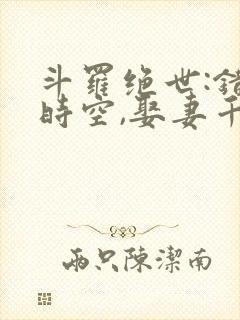 斗羅绝世:錯
時空,娶妻千
兩只陳潔南